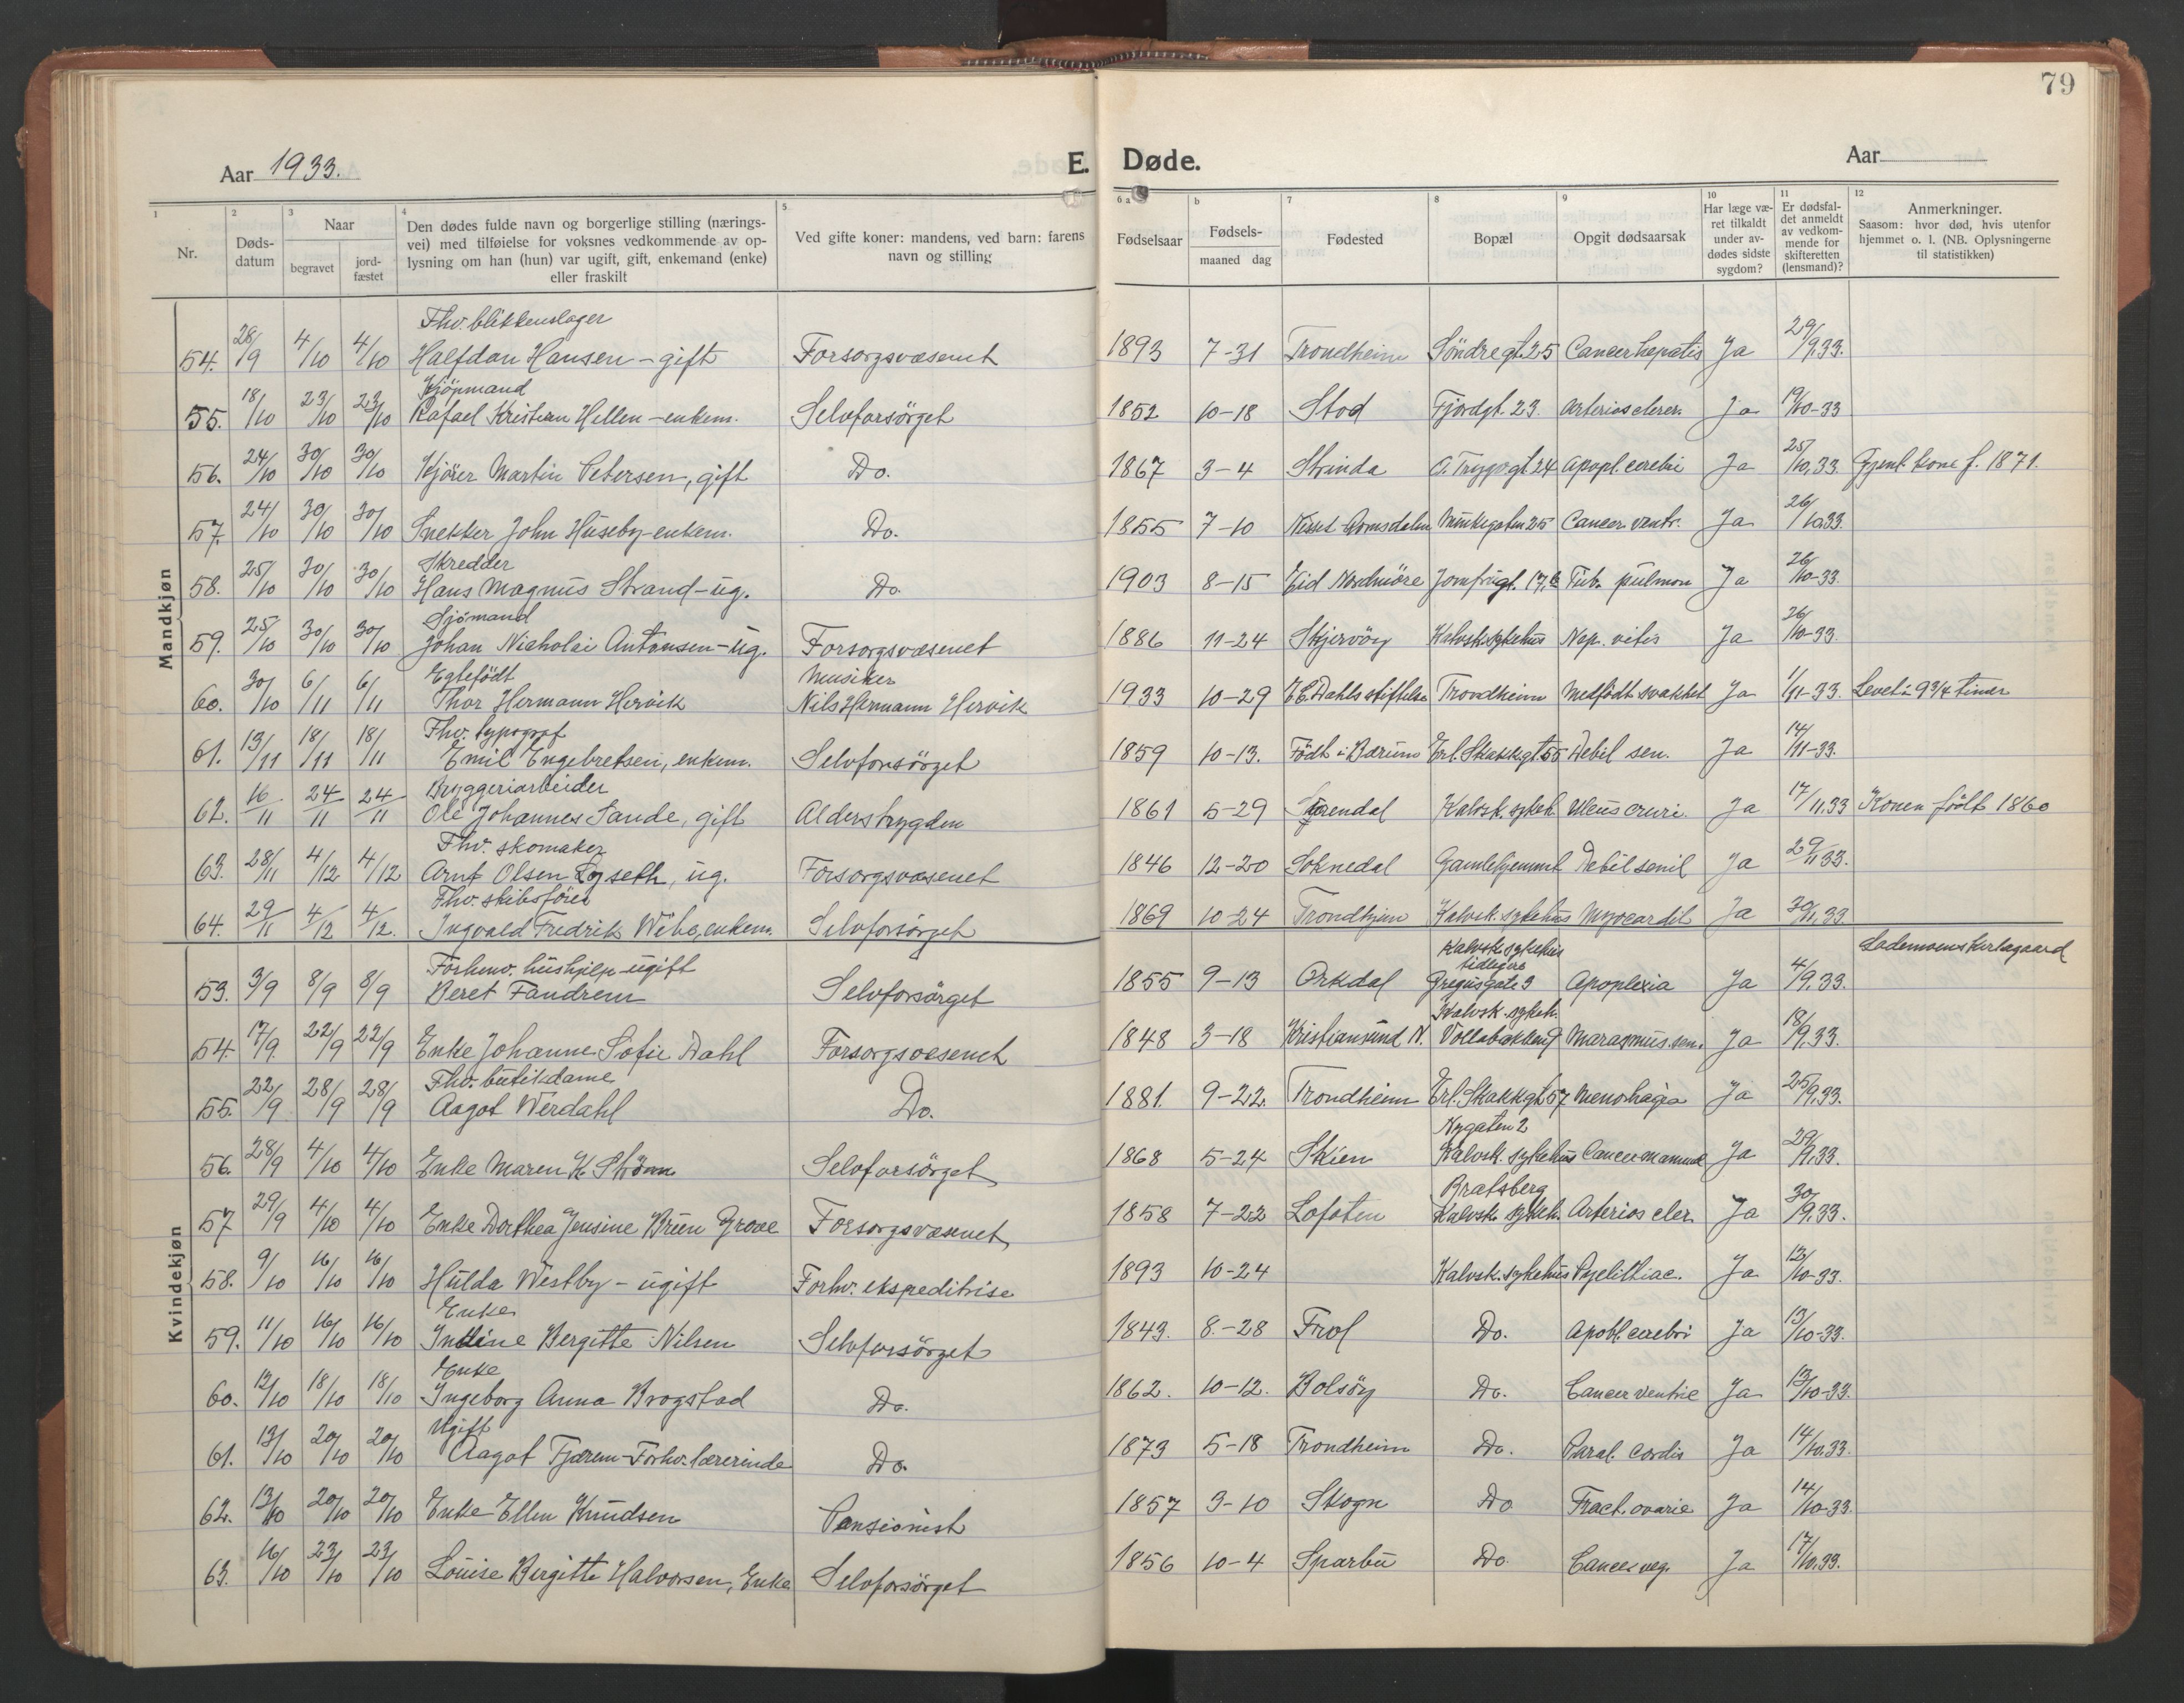 79
Aar 1933.
E. Døde.
Aar
1 2 3 4 5 6 a b 7 8 9 10 11 12
Nr.
Døds-
datum
Naar
begravet
jord-
fæstet
Den dødes fulde navn og borgerlige stilling (nærings-
vei) med tilføielse for voksnes vedkommende av op-
lysning om han (hun) var ugift, gift, enkemand (enke)
eller fraskilt
Ved gifte koner: mandens, ved barn: farens
navn og stilling
Fødselsaar
Fødsels-
maaned dag
Fødested
Bopæl
Opgit dødsaarsak
Har læge væ-
ret tilkaldt
under av-
dødes sidste
sygdom?
Er dødsfal-
det anmeldt
av vedkom-
mende for
skifteretten
(lensmand)?
Anmerkninger.
Saasom: hvor død, hvis utenfor
hjemmet o. l. (NB. Oplysningerne
til statistikken)
Mandkjøn
Fhv. blikkenslager
54. 28/9 4/10 4/10 Halfdan Hansen - gift Forsorgsvæsenet 1893 7-31 Trondheim Söndregt. 25 Cancer hepatis Ja 29/9.33.
Kjöpmand
55. 18/10 23/10 23/10 Rafael Kristian Hellen - enkem. Selvforsörget 1852 10-18 Stod Fjordgt. 23. Ja 19/10-33
56. 24/10 30/10 30/10 Kjörer Martin Petersen, gift Do. 1867 3-4 Strinda O. Trygvgt 24 Apopl. cerebri Ja 25/10.33 Gjenl. kone f. 1871.
57. 24/10 30/10 30/10 Snekker John Huseby - enkem. Do. 1855 7-10 Munkegaten 25 Cancer ventr. Ja 26/10.33.
Skredder
58. 25/10 30/10 30/10 Hans Magnus Strand - ug. Do 1903 8-15 Eid Nordmöre Jomfrugt. 17, b Tub. pulmon Ja 26/10-33.
Sjömand
59. 25/10 30/10 30/10 Johan Nicholai Antonsen - ug. Forsorgsvæsenet 1886 11-24 Skjervöy Kalvsk. sykehus Ja 26/10-33.
Egtefödt Musiker
60. 30/10 6/11 6/11 Thor Hermann Hervik Nils Hermann Hervik 1933 10-29 E.C. Dahls stiftelse Trondheim Medfödt svakhet Ja 1/11-33. Levet i 9 3/4 timer
Fhv. typograf
61. 13/11 18/11 18/11 Emil Engebretsen, enkem. Selvforsörget 1859 10-13. Födt i Bærum Erl. Skakkgt. 55 Debil sen. Ja 14/11-33.
Bryggeriarbeider
62. 16/11 24/11 24/11 Ole Johannes Sande, gift Alderstrygden 1861 5-29 Kalvsk. sykeh. Ulcus cruri. Ja 17/11.33 Konen födt 1860
Fhv. skomaker
63. 28/11 4/12 4/12 Arnt Olsen seth, ug. Forsorgsvæsenet 1846 12-20 Soknedal Gamlehjemmet Debil senil Ja 29/11 33.
Fhv. skibsförer
64. 29/11 4/12 4/12. Ingvald Fredrik enkem. Selvforsörget 1869 10-24 Trondhjem Kalvsk. sykehus Myocardit Ja 30/11.33.
Kvindekjøn
Forhenv. hushjelp - ugift Kalvsk. sykehus tidligere Lademoens kirkegaard
53. 3/9 8/9 8/9 Beret Fandrem Selvforsörget 1855 9-13 Orkdal Gregusgate 3 Apoplexia Ja 4/9.33.
Kalvsk. sykeh.
54. 17/9. 22/9 22/9 Enke Johanne Sofie Dahl Forsorgsvæsenet 1848 3-18 Kristiansund N. Vollabakken 9 Marasmus sen. Ja 18/9.33.
Fhv. butikdame
55. 22/9 28/9 28/9 Aagot Werdahl Do. 1881. 9-22. Trondheim Erl. Skakkgt 57 Menorhagia Ja 25/9.33.
Nygaten 2
56. 28/9 4/10 4/10 Enke Maren K. Ström Selvforsörget 1868 5-24 Skien Kalvsk. sykehus Ja 29/9.33.
Bratsberg
57 29/9 4/10 4/10 Enke Dorthea Jensine Brun Grove Forsorgsvæsenet 1858 7-22 Lofoten Kalvsk. sykeh. Arterioscler. Ja 30/9.33.
58. 9/10 16/10 16/10 Hulda Westby - ugift Forhv. ekspeditrise 1893 10-24 Kalvsk. sykehus Ja 12/10-33.
Enke
59. 11/10 16/10 16/10 Bergitte Nilsen Selvforsörget 1843. 8.-28 Frol Do. Apobl. cerebri Ja 13/10-33.
Enke
60. 12/10 18/10 18/10 Ingeborg Anna Brogstad Do. 1862. 10-12. Bolsöy Do. Cancer ventric Ja 13/10-33.
Ugift
61. 13/10 20/10 20/10 Aagot Tjærem - Forhv. lærerinde Do. 1873 5-18 Trondheim Do. Paral. cordis Ja 14/10.33.
62. 13/10 20/10 20/10 Enke Ellen Knudsen Pensionist 1857 3-10 Skogn Do Ja 14/10-33.
63. 16/10 23/10 23/10 Louise Birgitte Halvorsen, Enke Selvforsörget 1856 10-4 Sparbu Do. Ja 17/10.33.